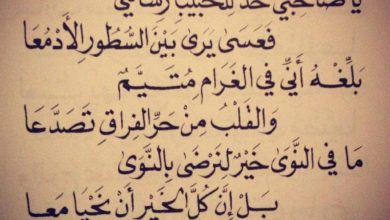 يَا صَاحِبِي خُذْ لِلْحَبِيبِ رِسَالَتِي
فَعَسَى يَرَى بَيْنَ السُّطُورِ الأَدْمُعَا
بَلِّغْهُ أَنِّي فِي الغَرَامِ مُتَيَّمٌ
وَالقَلْبُ مِنْ حَرِّ الفِرَاقِ تَصَدَّعَا
مَا فِي النَّوَى خَيْرٌ لِنَرْضَى بِالنَّوَى
بَلْ إِنَّ كُلَّ الخَيْرِ أَنْ نَحْيَا مَعَا